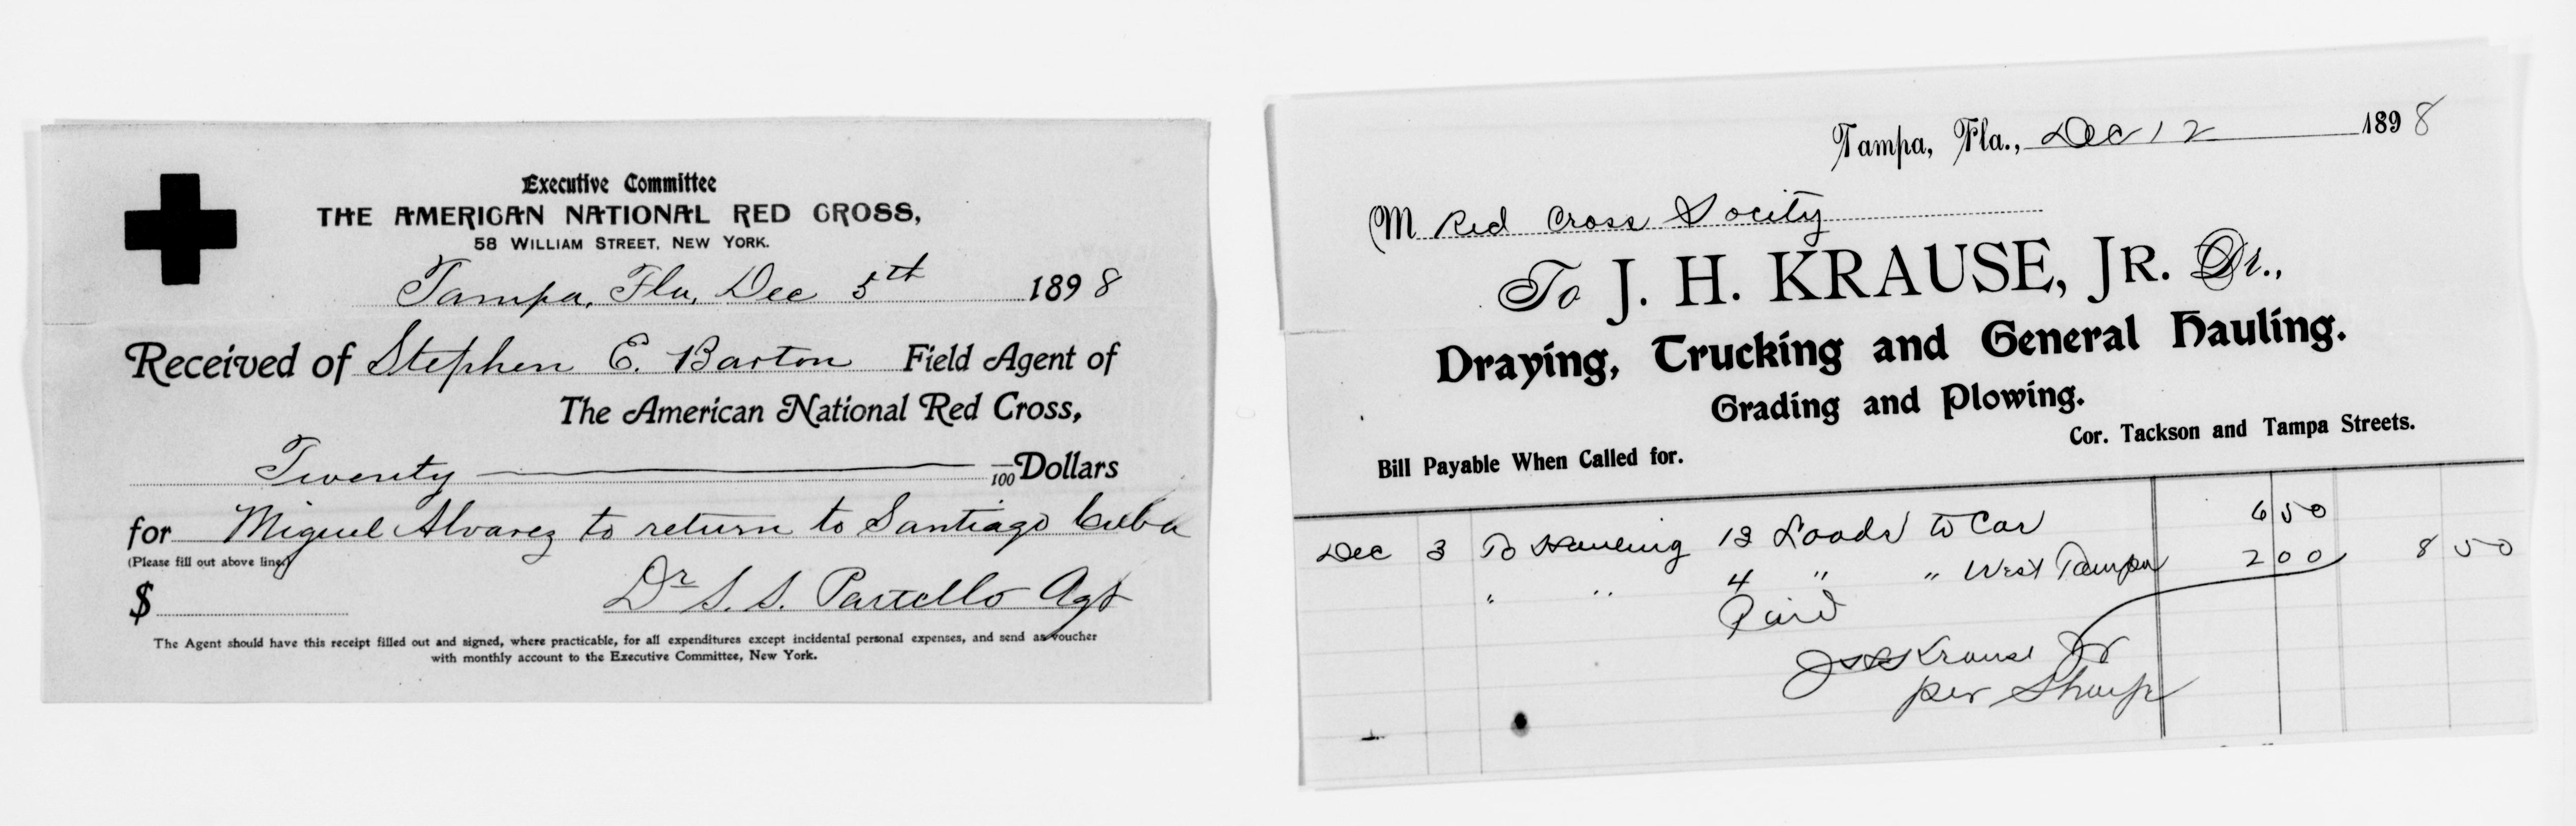 Executive Committee
THE AMERICAN NATIONAL RED CROSS,
58 WILLIAM STREET, NEW YORK.
Tampa, Fla, Dec 5th 1898
Received of Stephen E. Barton Field Agent of
The American National Red Cross,
Twenty — /100 Dollars
for Miguel Alvarez to return to Santiago Cuba
(Please fill out above line)
$
Dr S. S. Partello Agt
The Agent should have this receipt filled out and signed, where practicable, for all expenditures except incidental personal expenses, and send as voucher
with monthly account to the Executive Committee, New York.
Tampa, Fla., Dec 12 1898
M Red Cross Socity
To J. H. KRAUSE, JR. Dr.,
Draying, Trucking and General Hauling.
Grading and Plowing.
Cor. Tackson and Tampa Streets.
Bill Payable When Called for.
Dec 3 To Hauling 13 Loads to Car 6 50
" " 4 " " West Tampa 2 00 8 50
Paid
Krause Jr
per Sharp